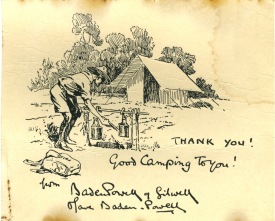 THANK YOU!
Good Camping to You!
from
Baden Powell of Gilwell
Olave Baden-Powell